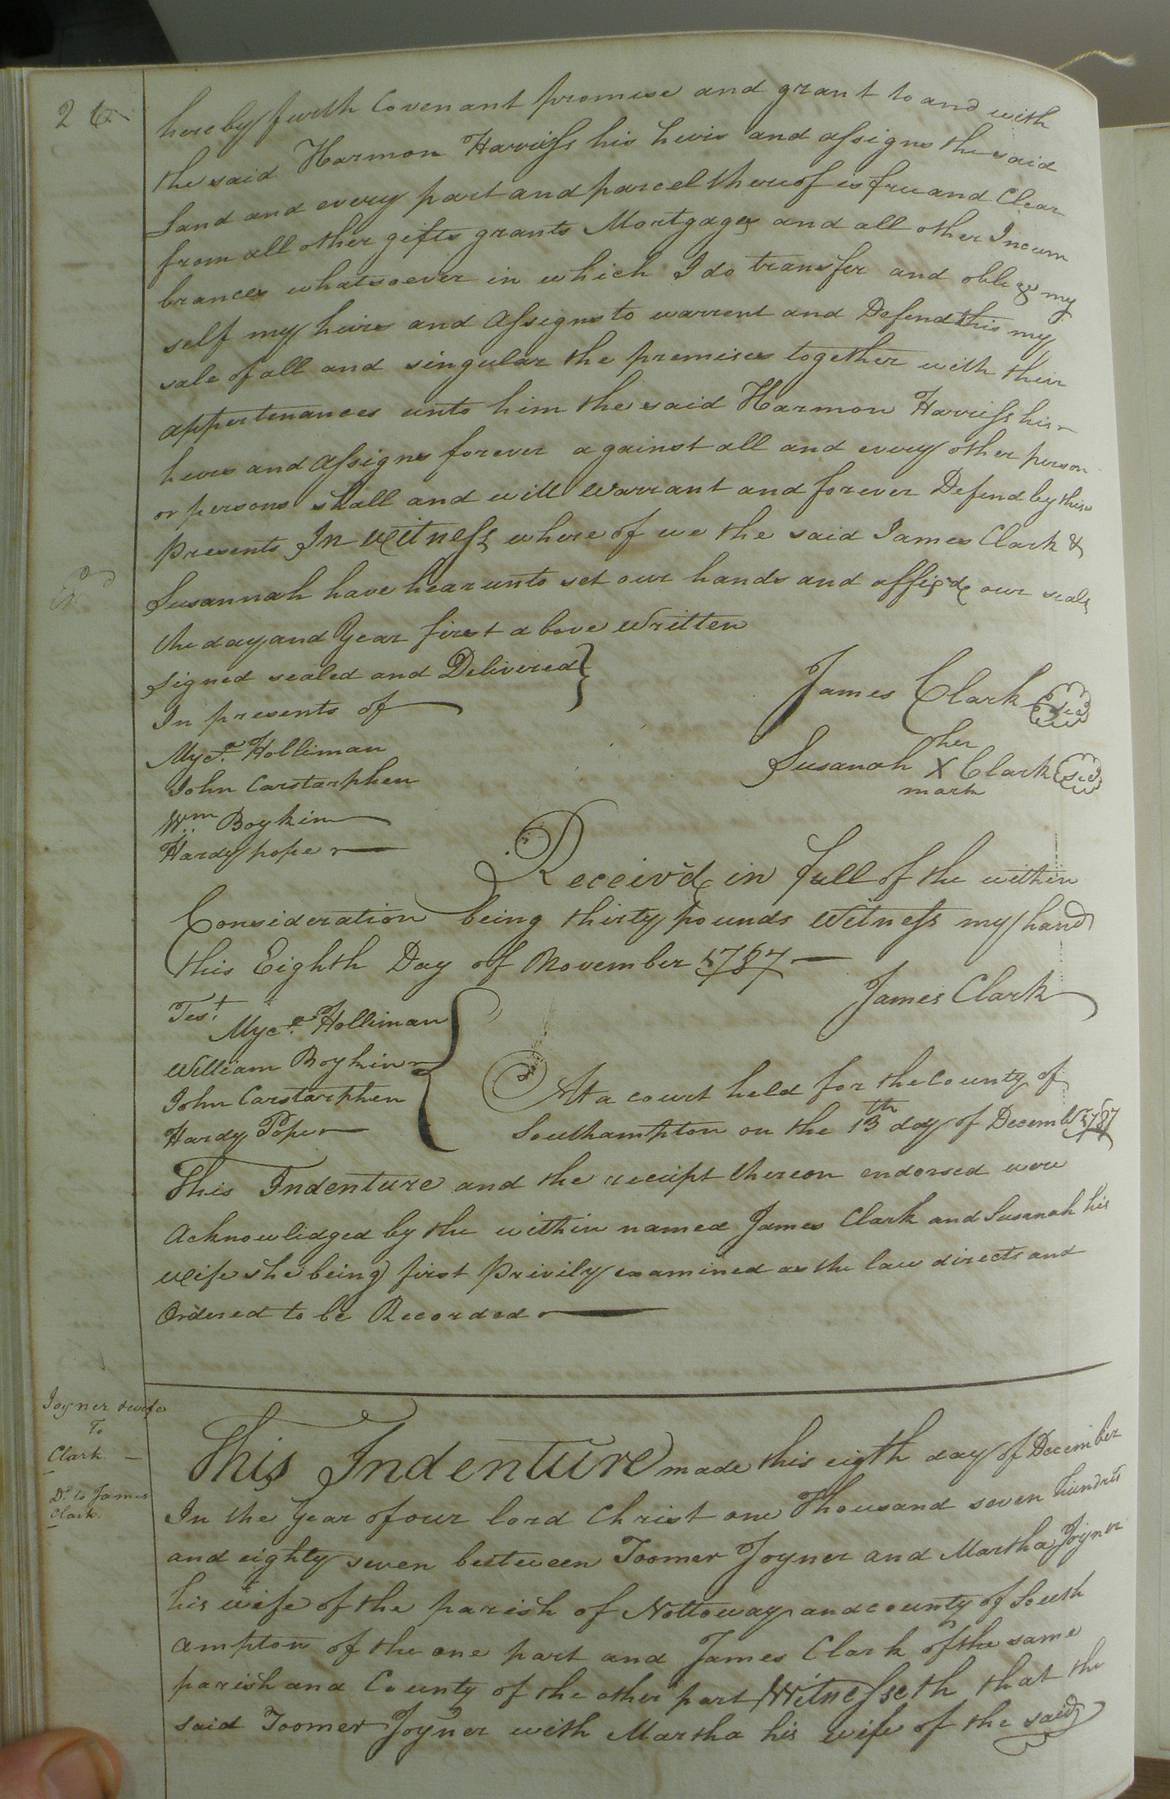 26
hereby furth Covenant promise and grant to and with
the said Harmon Harriss his heirs and assigns the said
Land and every part and parcel thereof is free and Clear
from all other gifts grants Mortgages and all other Incum
brances whatsoever in which I do transfer and oblige my
self my heirs and Assigns to warrent and Defend this my
sale of all and singular the premises together with their
appertenances unto him the said Harmon Harriss his
heirs and Assigns forever against all and every other person
or persons shall and will Warrant and forever Defend by these
presents In witness where of we the said James Clark &
Susannah have hearunto set our hands and affix'd our seals
the day and Year first above Written
signed sealed and Delivered
In presents of
James Clark
Myc.^e Holliman
her
Susanah X Clark
mark
John Carstarphen
W^m Boykin
Hardy pope
Receiv'd in full of the within
Consideration being thirty pounds Witness my hand
this Eighth Day of November 1787
James Clark
Tes^t
Myc.^e Holliman
William Boykin
John Carstarphen
Hardy Pope
At a court held for the County of
Southampton on the 13^th day of Decemb^r 1787
This Indenture and the receipt thereon endorsed were
Acknowledged by the within named James Clark and Susanah his
wife she being first privily examined as the law directs and
Ordered to be Recorded
Joyner & wife
To
Clark
D^d to James
Clark.
This Indenture made this eigth day of December
In the Year of our lord Christ one Thousand seven hundred
and eighty seven between Toomer Joyner and Martha Joyner
his wife of the parish of Nottoway and county of South
ampton of the one part and James Clark of the same
parish and County of the other part Witnesseth that the
said Toomer Joyner with Martha his wife of the said